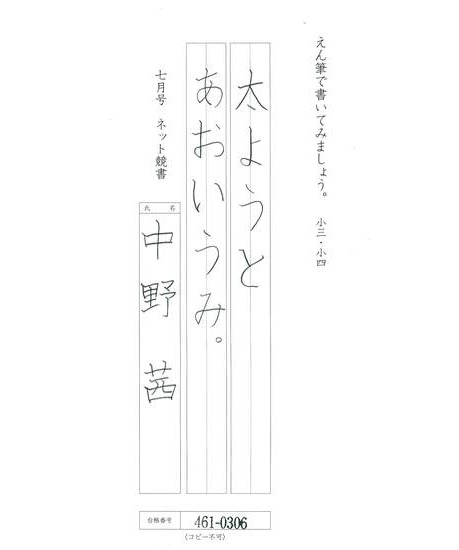 えん筆で書いてみましょう。 小三・小四
太ようと
あおいうみ。
七月号 ネット競書
氏名
中野茜
台帳番号 461-0306
(コピー不可)